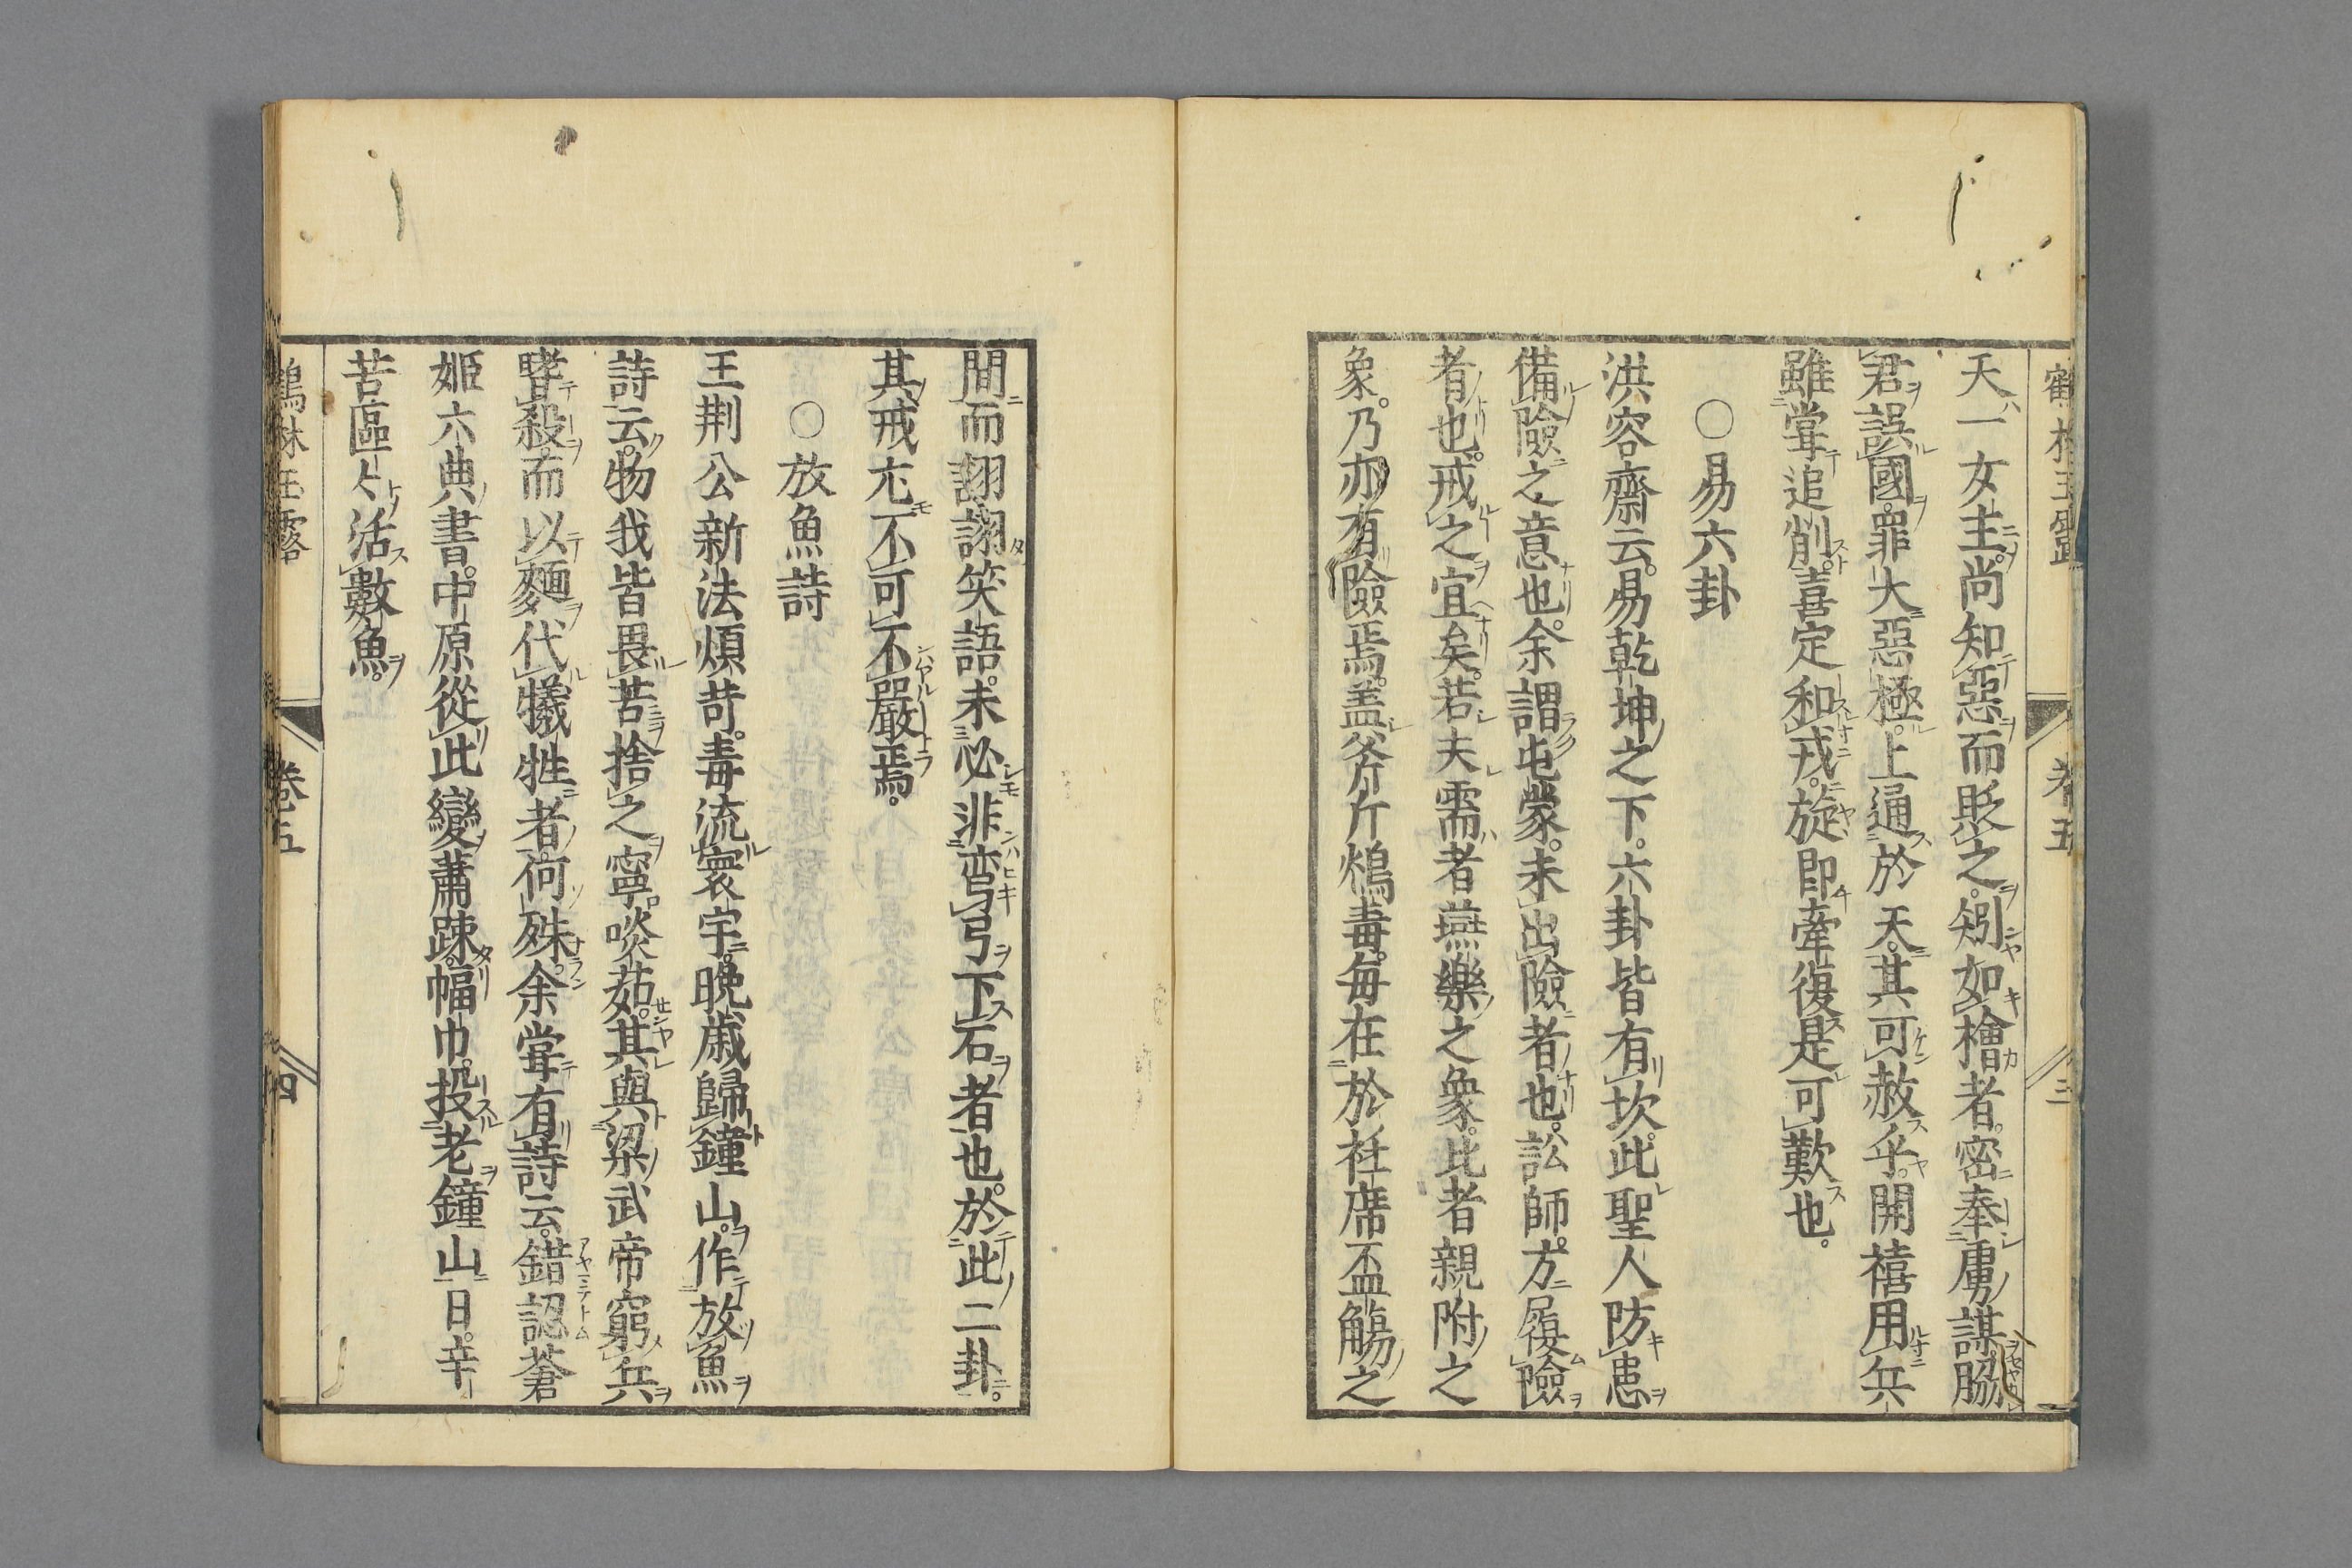 天一女主。尚知惡而貶之。矧如檜者。密奉虜謀。脇
君誤國。罪大惡極。上通於天。其可赦乎。開禧用兵
雖甞追削。喜定和戎。旋即牽復。是可歎也。
○易六卦
洪容齋云。易乾坤之下。六卦皆有坎。此聖人防患
備險之意也。余謂屯蒙。未出險者也。訟師。方履險
者也。戒之宜矣。若夫需者燕樂之象。比者親附之
象。乃亦有險焉。盖斧斤鴆毒。每在於衽席盃觴之
間而詡詡笑語。未必非弯弓下石者也。於此二卦。
其戒尤不可不嚴焉。
○放魚詩
王荆公新法煩苛。毒流寰宇。晚歳歸鐘山。作放魚
詩云。物我皆畏苦捨之寧啖茹。其與梁武帝窮兵
嗜殺而以麵代犧牲者何殊。余甞有詩云。錯認蒼
姬六典書。中原從此變蕭疎。幅巾投老鐘山日。辛
苦區々活數魚。
鶴林玉露
卷五
四